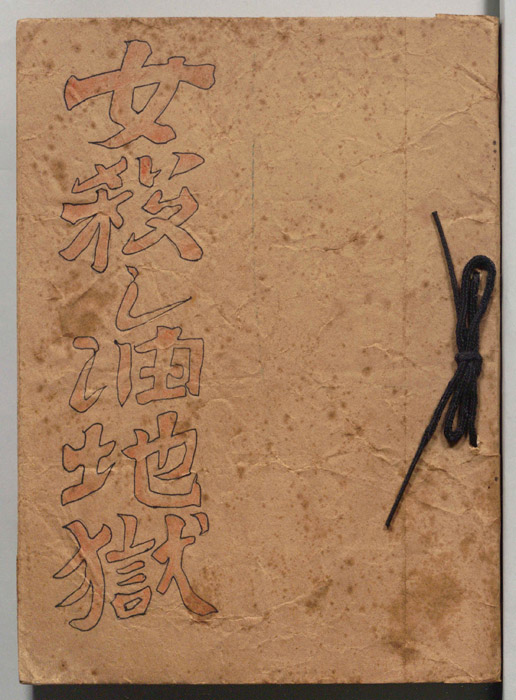 女殺し油地獄